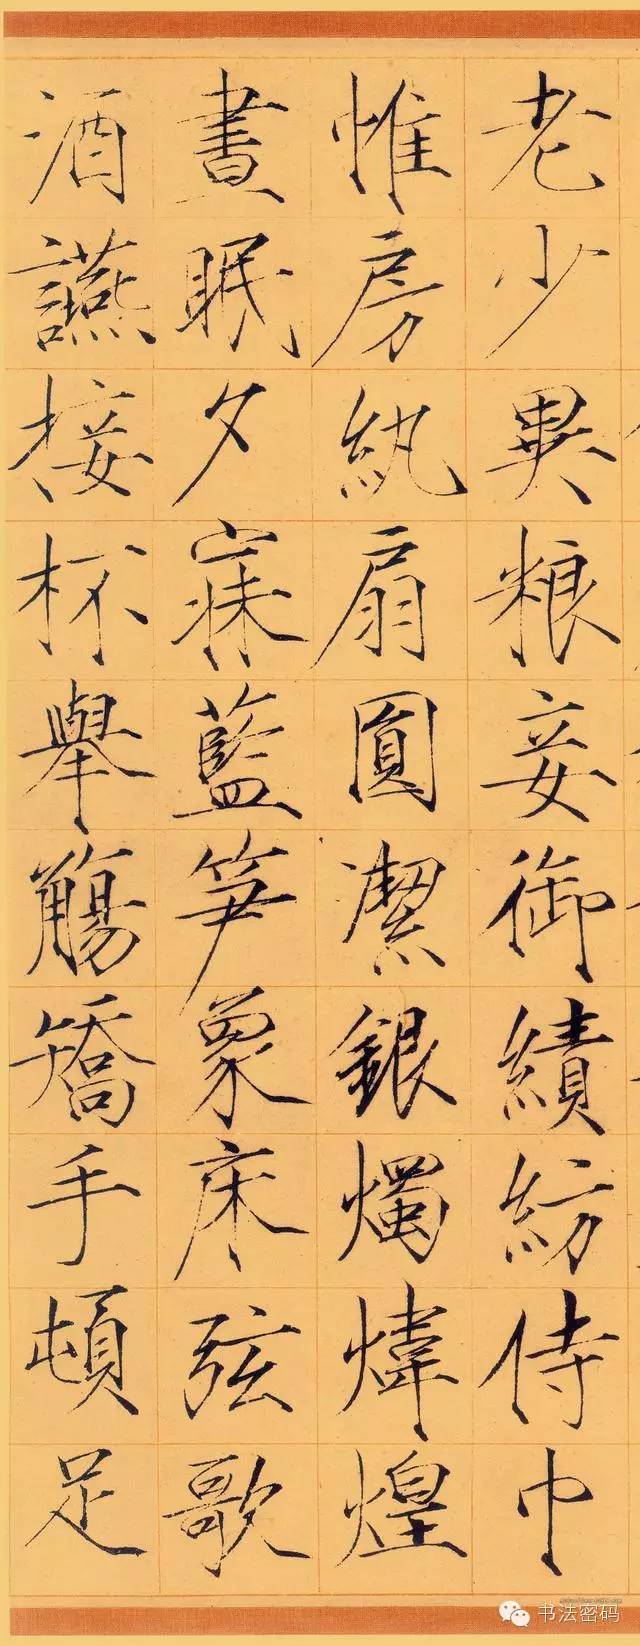 老少異粮妾御績紡侍巾
帷房紈扇圓潔銀燭煒煌
晝眠夕寐藍笋象床弦歌
酒讌接杯舉觴矯手頓足
书法密码